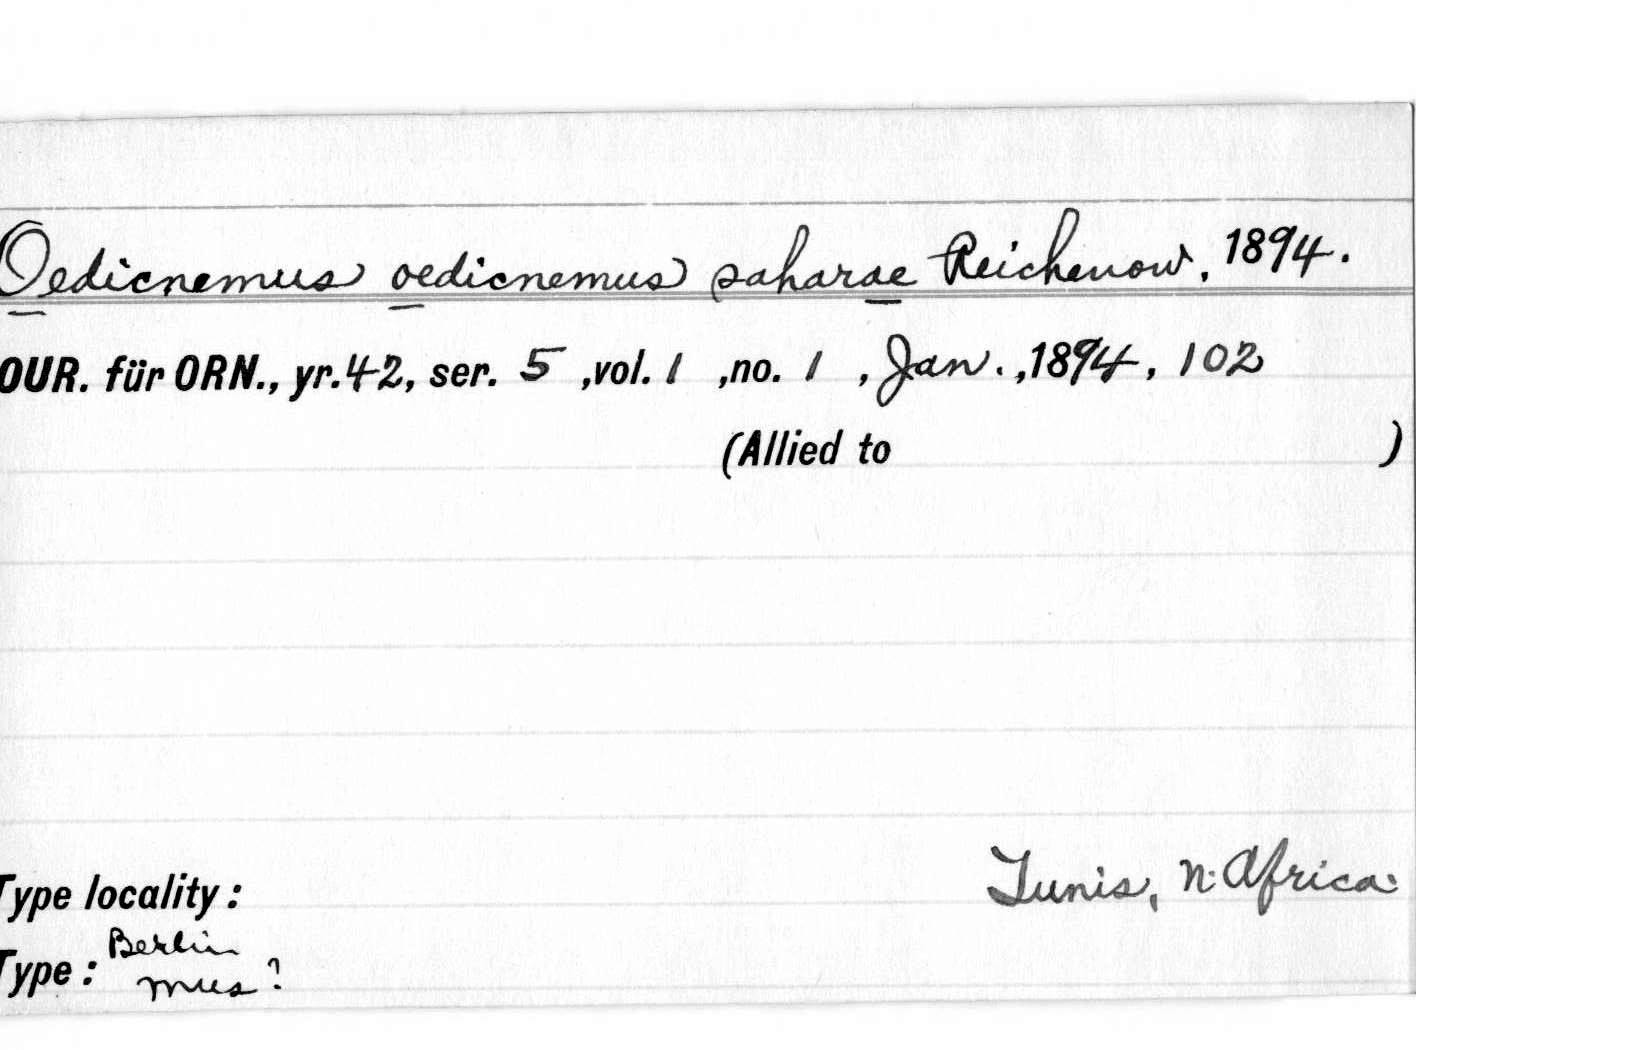 Oedicnemus oedicnemus saharae Reichenow, 1894.
OUR. für ORN., yr. 42, ser. 5 ,vol. 1 ,no. 1 , Jan. ,1894, 102
(Allied to )
Type locality: Tunis, N. Africa.
Type: Berlin
mus?